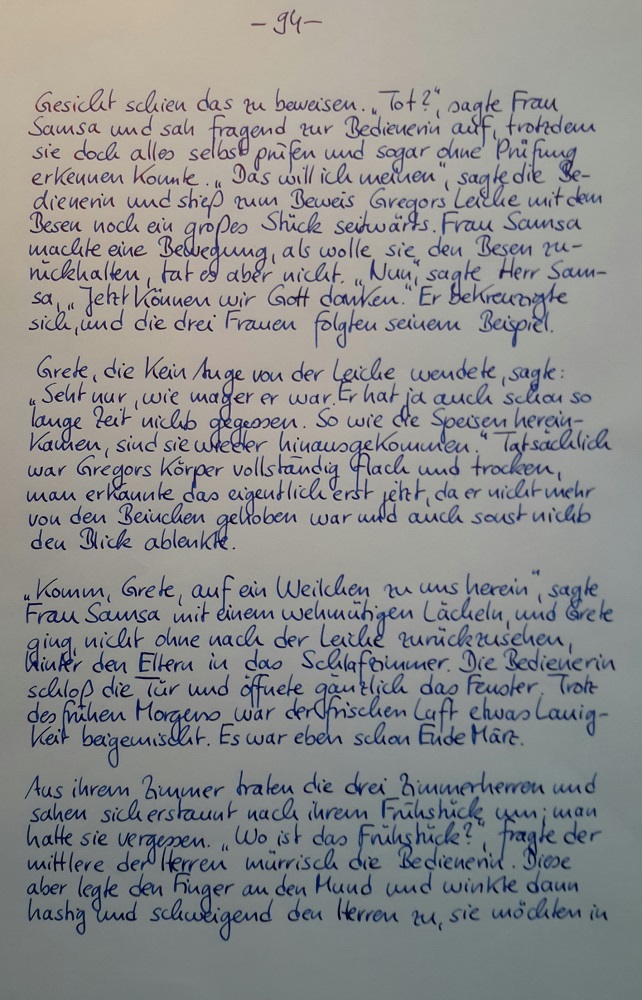 - 94 -
Gesicht schien das zu beweisen. „Tot?", sagte Frau
Samsa und sah fragend zur Bedienerin auf, trotzdem
sie doch alles selbst prüfen und sogar ohne Prüfung
erkennen konnte. „Das will ich meinen", sagte die Be-
dienerin und stieß zum Beweis Gregors Leiche mit dem
Besen noch ein großes Stück seitwärts. Frau Samsa
machte eine Bewegung, als wolle sie den Besen zu-
rückhalten, tat es aber nicht. „Nun", sagte Herr Sam-
sa, „jetzt können wir Gott danken." Er bekreuzigte
sich, und die drei Frauen folgten seinem Beispiel.
Grete, die kein Auge von der Leiche wendete, sagte:
„Seht nur, wie mager er war. Er hat ja auch schon so
lange Zeit nichts gegessen. So wie die Speisen herein-
kamen, sind sie wieder hinausgekommen." Tatsächlich
war Gregors Körper vollständig flach und trocken,
man erkannte das eigentlich erst jetzt, da er nicht mehr
von den Beinchen gehoben war und auch sonst nichts
den Blick ablenkte.
„Komm, Grete, auf ein Weilchen zu uns herein", sagte
Frau Samsa mit einem wehmütigen Lächeln, und Grete
ging, nicht ohne nach der Leiche zurückzusehen,
hinter den Eltern in das Schlafzimmer. Die Bedienerin
schloß die Tür und öffnete gänzlich das Fenster. Trotz
des frühen Morgens war der frischen Luft etwas Lauig-
keit beigemischt. Es war eben schon Ende März.
Aus ihrem Zimmer traten die drei Zimmerherren und
sahen sich erstaunt nach ihrem Frühstück um; man
hatte sie vergessen. „Wo ist das Frühstück?", fragte der
mittlere der Herren mürrisch die Bedienerin. Diese
aber legte den Finger an den Mund und winkte dann
hastig und schweigend den Herren zu, sie möchten in